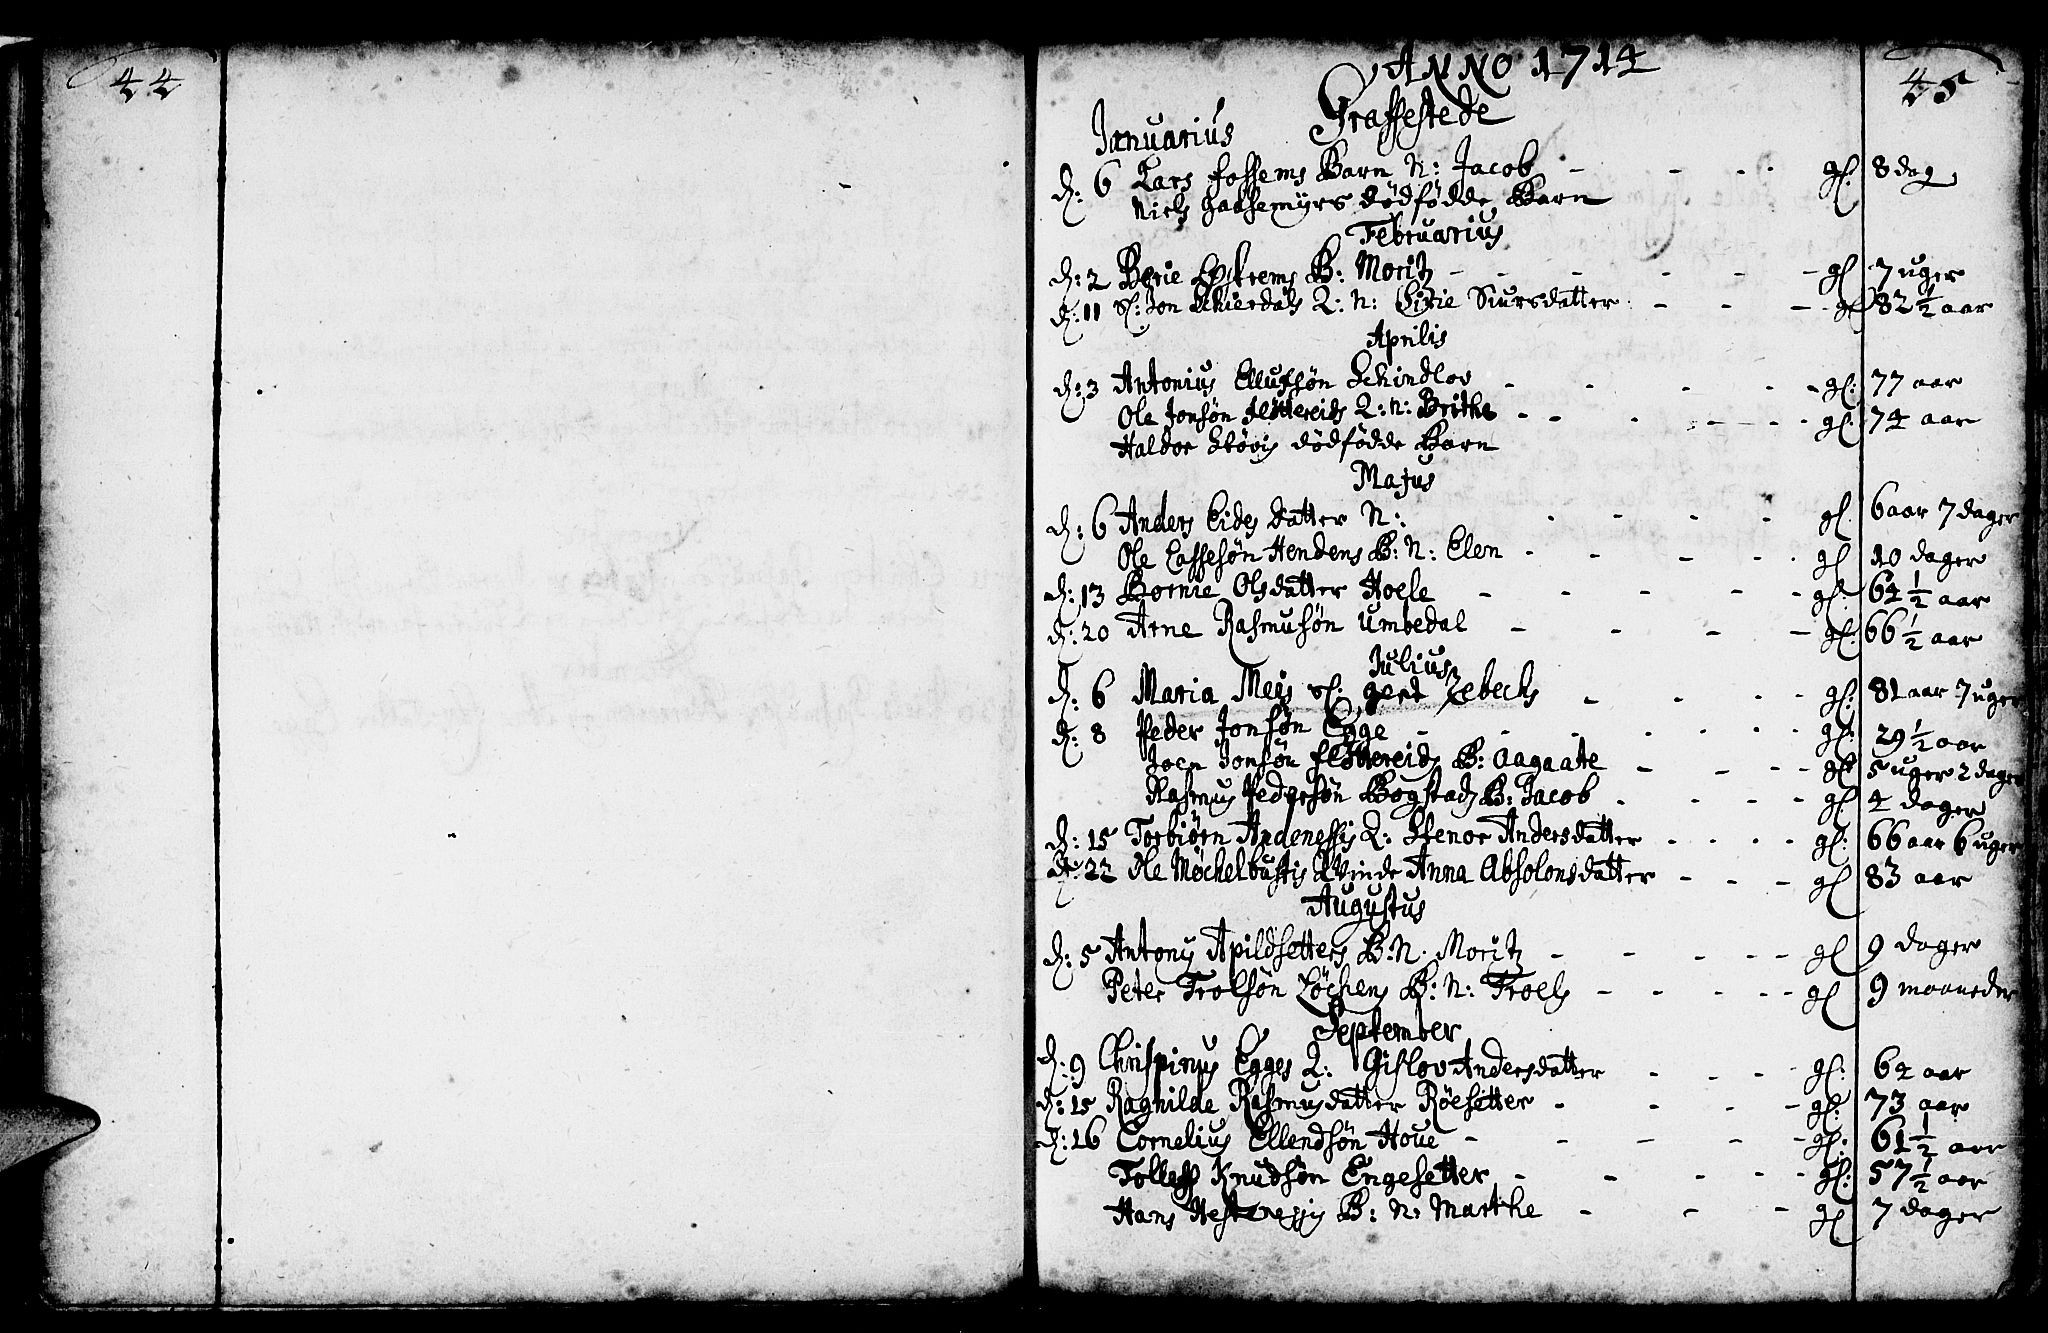 44
ANNO 1714
45
Graffestede
Januarius
d: 6 Lars fossems Barn N: Jacob - - - - gl: 8 dag
Niels gaasemyrs dödfödde Barn
Februarius
d: 2 Berie Løstrems B: Moritz - - - - - - gl 7 uger
d: 11 Sl: Jon Schierdals Q: N: Sisie Siursdatter - - - gl 82 1/2 aar
Aprilis
d: 3 Antonius Ellufsøn Schindlov - - - - - gl: 77 aar
Ole Jonsøn Q: n: Brithe - - - - - - gl: 74 aar
Haldor Støvis dödfödde Barn
Majus
d: 6 Anders Eides datter N: - - - - gl. 6 aar 7 dager
Ole Lassesøn Hendens B: N: Elen - - - - - gl 10 dager
d: 13 Bornie Olsdatter Hoele - - - - - gl: 64 1/2 aar
d: 20 Arne Rasmusøn Umbedal - - - - gl: 66 1/2 aar
Julius
d: 6 Maria Meys Sl: gert Zebechs - - - - gl: 81 aar 7 uger
d: 8 Peder Jonsøn Egge - - - - - - - gl: 29 1/2 aar
Joen Jonsøn B: Aagaate - - - - gl 5 uger 2 dager
Rasmus Pedersøn Bogstads B: Jacob - - - - gl 4 dager
d: 15 Torbiørn Andenessis Q: Stenor Andersdatter - - - - gl: 66 aar 6 uger
d: 22 Ole Møchelbustis Qvinde Anna Absolonsdatter - - - gl 83 aar
Augustus
d: 5 Antonys Apildsetters B: N. Moritz - - - - - gl 9 dager
Peter Trolsøn Løchens B: N: Troels - - - - - gl 9 maaneder
September
d: 9 Chrispinus Egges Q: Gislov Andersdatter - - - gl: 64 aar
d: 15 Ragnilde Rasmusdatter Röesetter - - - - gl: 73 aar
d: 16 Cornelius Ellendsøn Houe - - - - - gl: 61 1/2 aar
Tolleff Knudsøn Engesetter - - - - gl: 57 1/2 aar
Hans Hestenessis B: N: Marthe - - - gl 7 dager